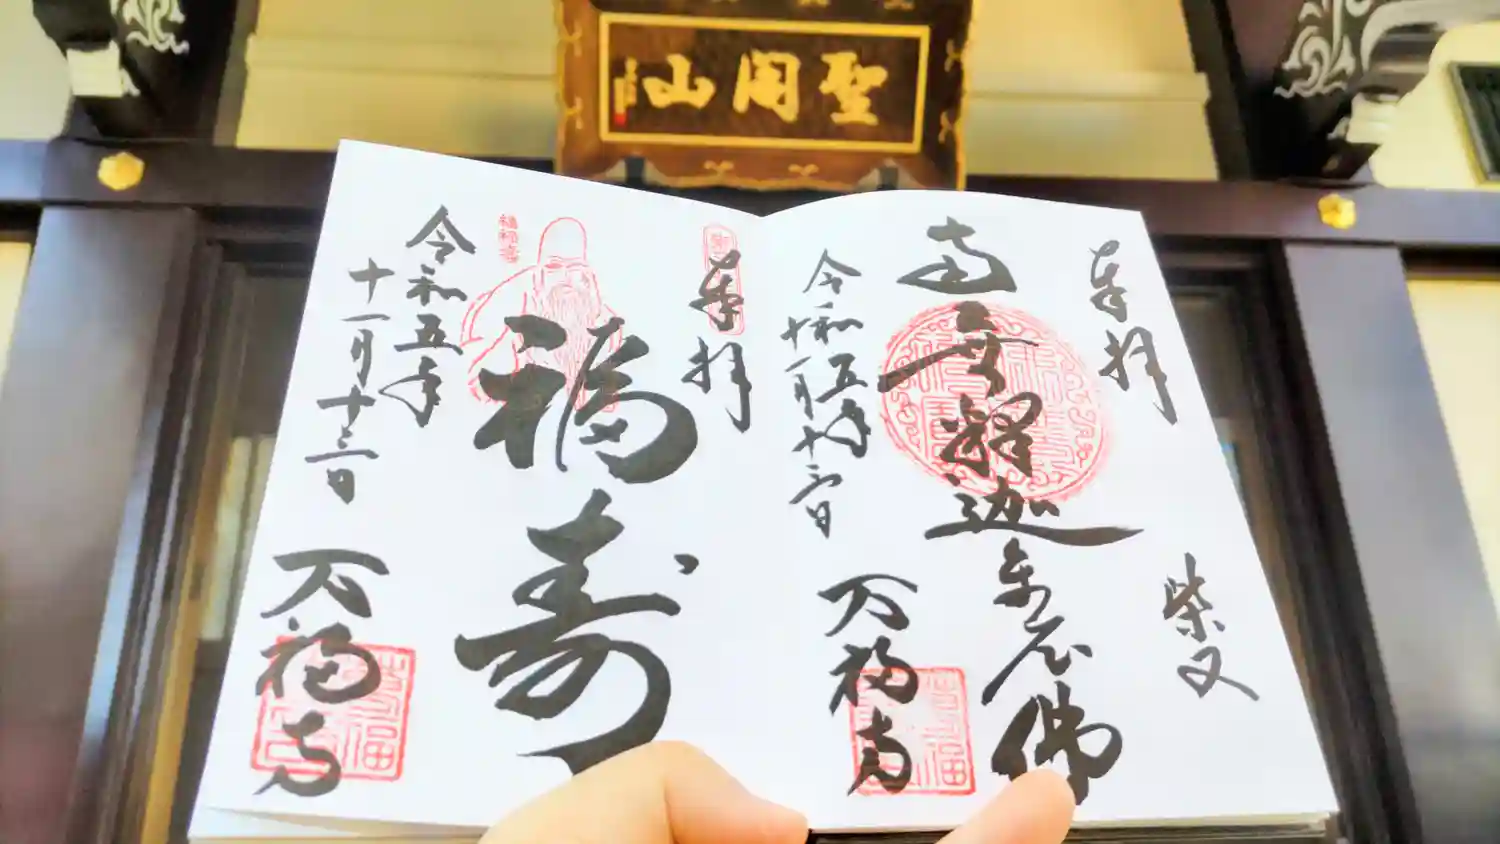 聖閣山
奉拝
柴又
南無釋迦牟尼佛
令和五年
十一月十三日
万福寺
奉拝
福寿
令和五年
十一月十三日
万福寺